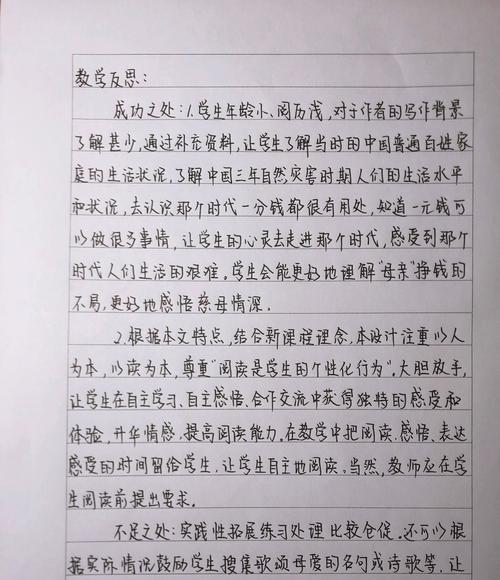 教学反思：
成功之处：1.学生年龄小、阅历浅，对于作者的写作背景
了解甚少，通过补充资料，让学生了解当时的中国普通百姓家
庭的生活状况，了解中国三年自然灾害时期人们的生活水平
和状况，去认识那个时代一分钱都很有用处，知道一元钱可
以做很多事情，让学生的心灵去走进那个时代，感受到那个
时代人们生活的艰难。学生会能更好地理解“母亲”挣钱的
不易，更好地感悟慈母情深。
2.根据本文特点，结合新课程理念，本设计注重以人
为本，以读为本，尊重“阅读是学生的个性化行为”。大胆放手，
让学生在自主学习、自主感悟、合作交流中获得独特的感受和
体验，升华情感，提高阅读能力。在教学中把阅读、感悟、表达
感受的时间留给学生，让学生自主地阅读。当然，教师应在学
生阅读前提出要求。
不足之处：实践性拓展练习处理比较仓促。还可以根
据实际情况鼓励学生搜集歌颂母爱的名句或诗歌等，让